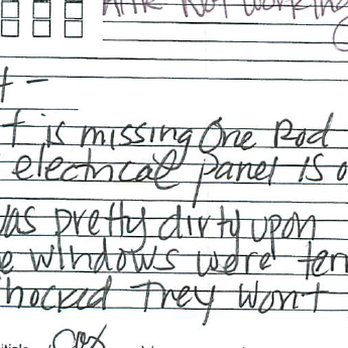 Not Working
t -
t is missing One Rod
electrical panel is o
as pretty dirty upon
e windows were ten
hocked They Won't